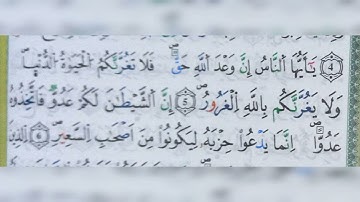 4 يَٰٓأَيُّهَا ٱلنَّاسُ إِنَّ وَعْدَ ٱللَّهِ حَقٌّ ۖ فَلَا تَغُرَّنَّكُمُ ٱلْحَيَوٰةُ ٱلدُّنْيَا
وَلَا يَغُرَّنَّكُم بِٱللَّهِ ٱلْغَرُورُ 5 إِنَّ ٱلشَّيْطَٰنَ لَكُمْ عَدُوٌّ فَٱتَّخِذُوهُ
عَدُوًّا ۚ إِنَّمَا يَدْعُوا۟ حِزْبَهُۥ لِيَكُونُوا۟ مِنْ أَصْحَٰبِ ٱلسَّعِيرِ 6 ٱلَّذِينَ